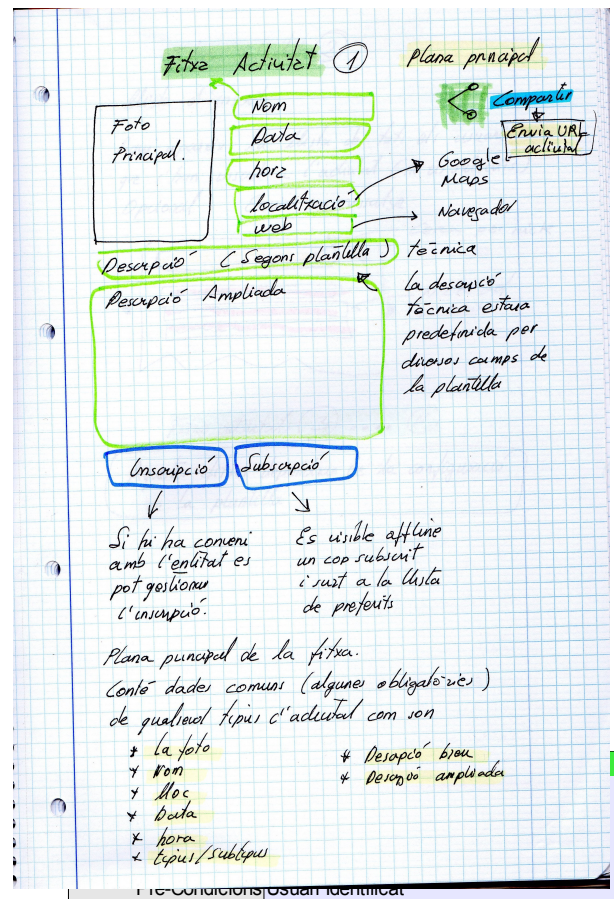 Fitxa Activitat 1 Plana principal
Compartir
Envia URL
activitat
Foto
Principal.
Nom
Data
hora
localització
web
Google
Maps
Navegador
Descripció (Segons plantilla) tècnica
Descripció Ampliada
La descripció
tècnica estara
predefinida per
diversos camps de
la plantilla
Inscripció
Subscripció
Si hi ha conveni
amb l'entitat es
pot gestionar
l'inscripció.
Es visible offline
un cop subscrit
i surt a la llista
de preferits
Plana principal de la fitxa.
Conté dades comuns (algunes obligatòries)
de qualsevol tipus d'activitat com son
* La foto
* Nom
* Lloc
* Data
* hora
* tipus/subtipus
* Descripció breu
* Descripció ampliada
Pre-Condicions Usuari identificat